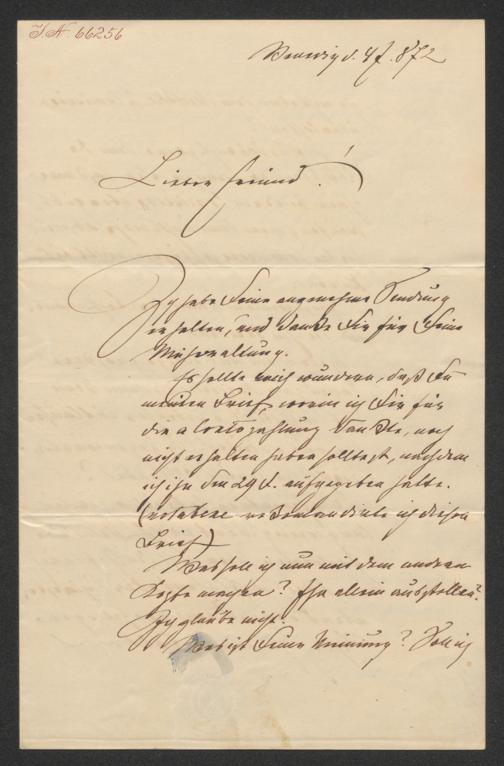 I.N. 66256
Venedig d. 4/7. 872
Lieber Freund!
Ich habe Deine angenehme Sendung
erhalten, und danke Dir für Deine
Mühewaltung.
Es sollte mich wundern, daß Du
meinen Brief, worin ich Dir für
die a Contozahlung dankte, noch
nicht erhalten haben solltest, nachdem
ich ihn den 29 d. aufgegeben hatte.
(notabene recomandirte ich diesen
Brief)
Was soll ich nun mit dem andern
machen? Ihn allein ausstellen?
Ich glaube nicht.
Was ist Deine Meinung? Soll ich